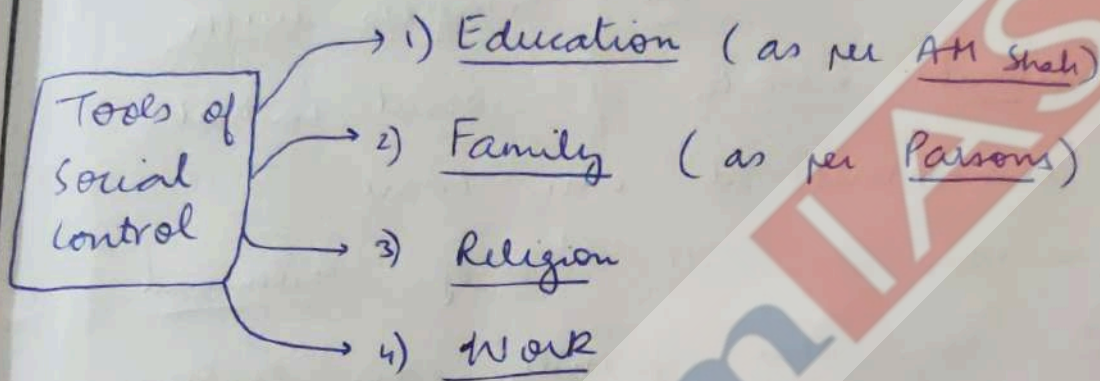 Tools of
Social
Control
1) Education (as per AM Shah)
2) Family (as per Parsons)
3) Religion
4) Work
IAS